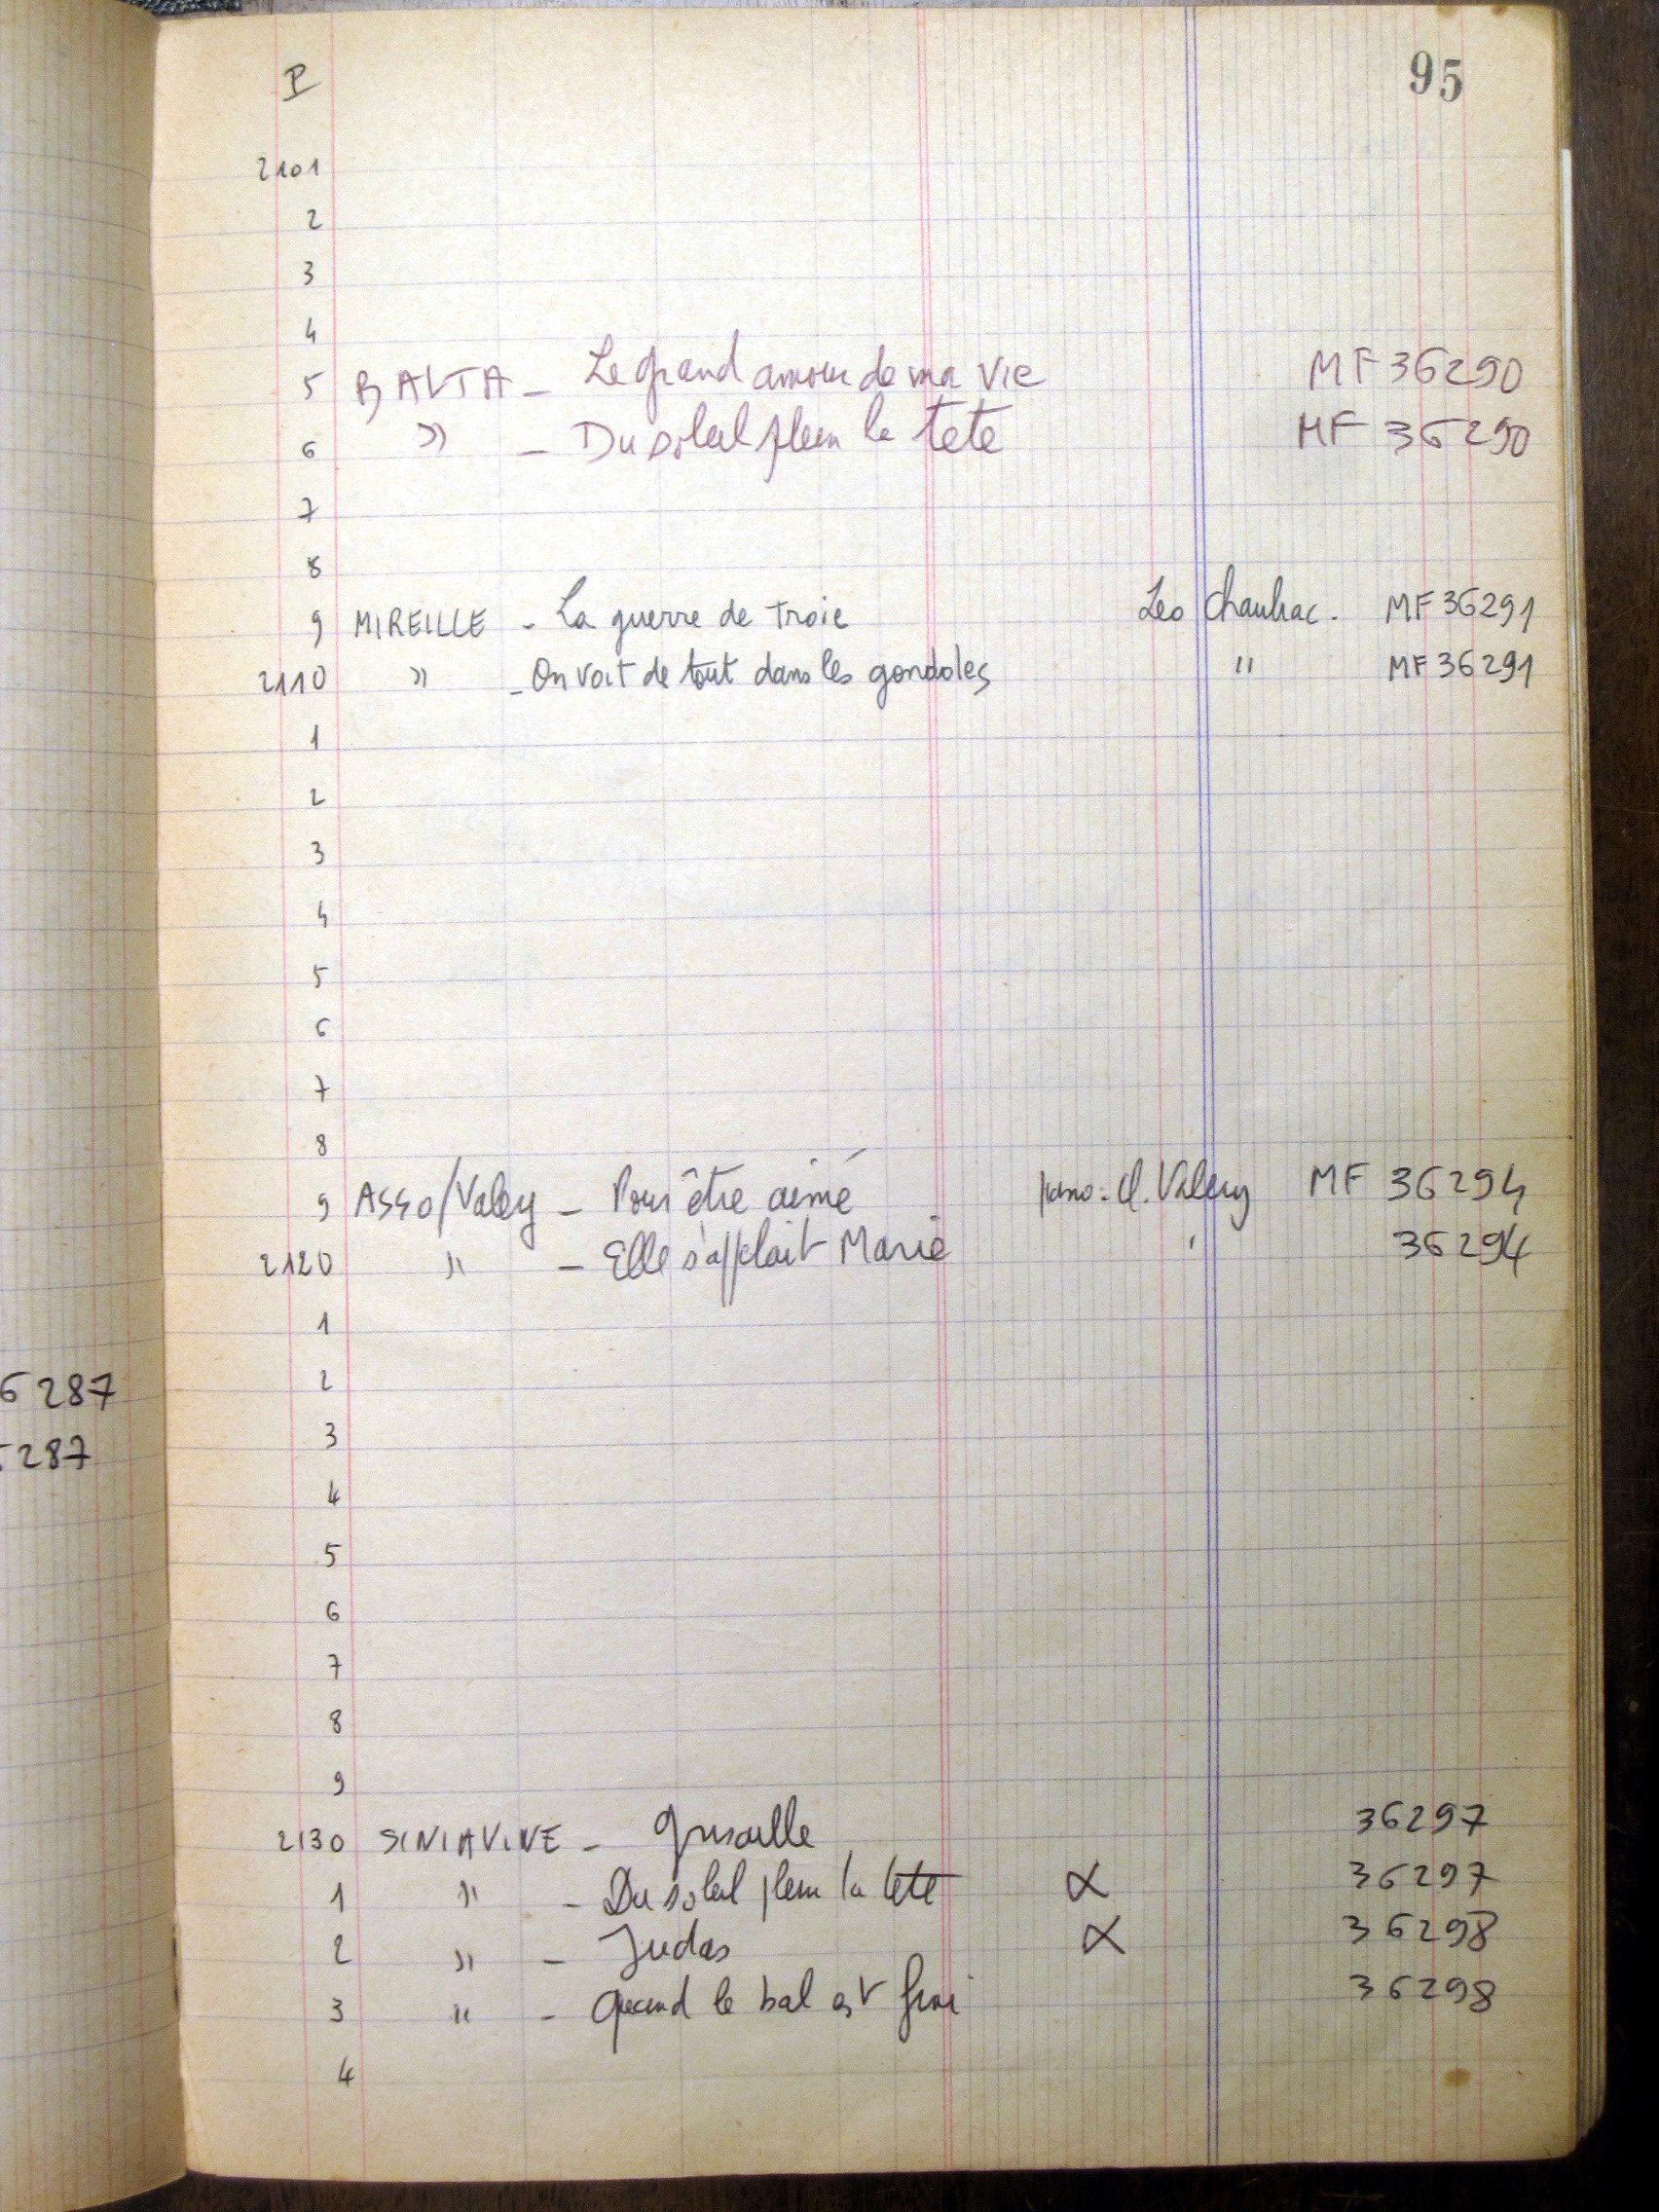 P
95
2101
2
3
4
5 BALTA - Le grand amour de ma vie MF 36290
6 " - Du soleil plein la tete MF 36290
7
8
9 MIREILLE - La guerre de Troie Leo Chauliac. MF 36291
2110 " - On voit de tout dans les gondoles " MF 36291
1
2
3
4
5
6
7
8
9 Asso/Valery - Pour être aimé piano: Cl. Valery MF 36294
2120 " - Elle s'applait Marie " 36294
1
2
6287
3
287
4
5
6
7
8
9
2130 SINIAVINE - Grisaille 36297
1 " - Du soleil plein la tete α 36297
2 " - Judas α 36298
3 " - Quand le bal est fini 36298
4